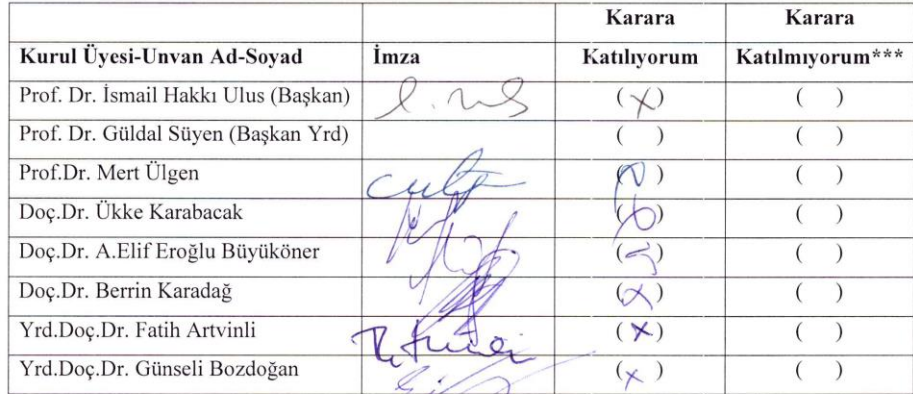 Karara Karara
Kurul Üyesi-Unvan Ad-Soyad İmza Katılıyorum Katılmıyorum***
Prof. Dr. İsmail Hakkı Ulus (Başkan) (X) ( )
Prof. Dr. Güldal Süyen (Başkan Yrd) ( ) ( )
Prof.Dr. Mert Ülgen ( ) ( )
Doç.Dr. Ükke Karabacak ( ) ( )
Doç.Dr. A.Elif Eroğlu Büyüköner ( ) ( )
Doç.Dr. Berrin Karadağ (X) ( )
Yrd.Doç.Dr. Fatih Artvinli (X) ( )
Yrd.Doç.Dr. Günseli Bozdoğan (X) ( )